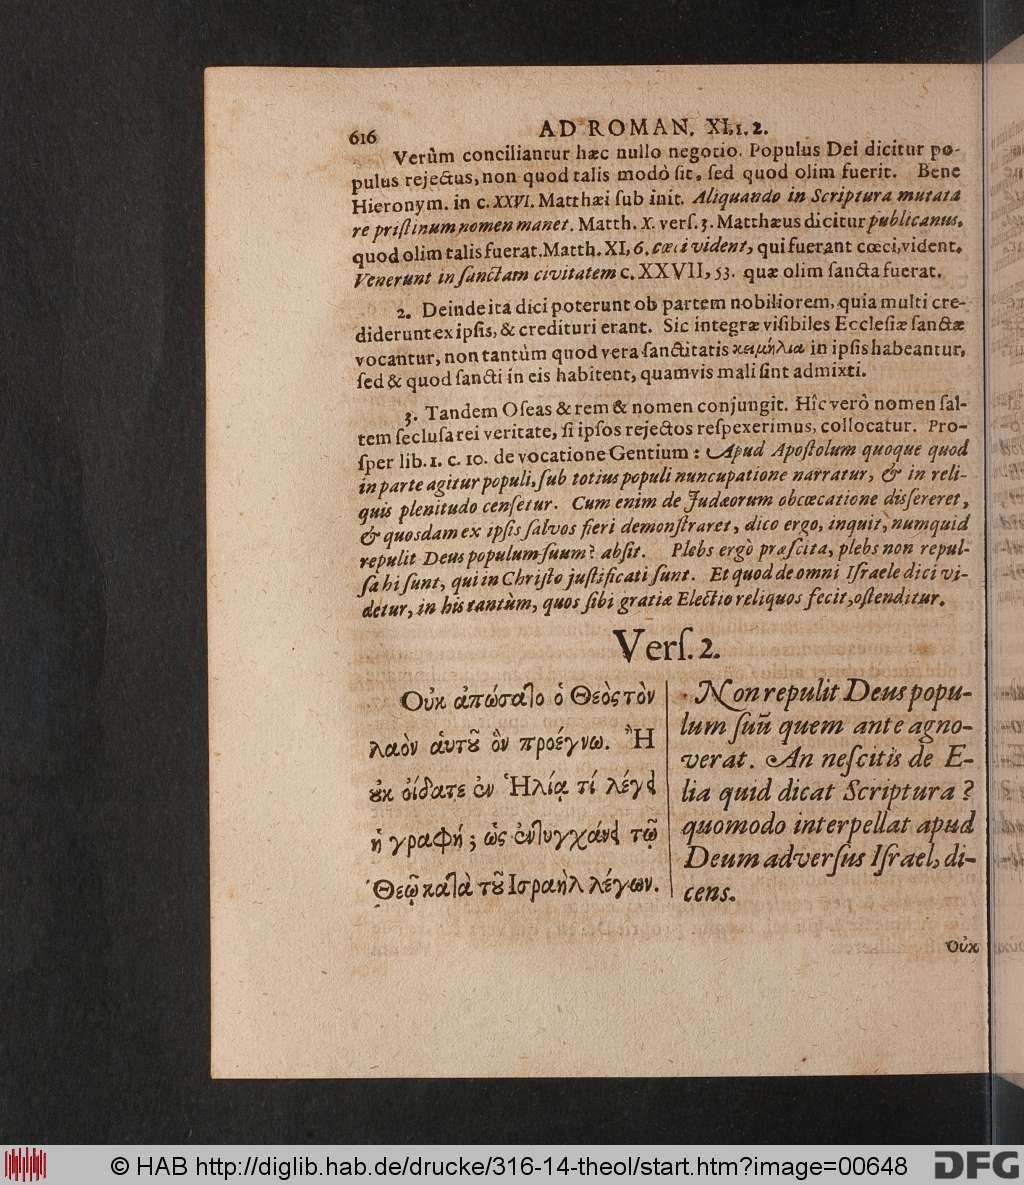 616
AD ROMAN. XI, 1. 2.
Verùm conciliantur hæc nullo negotio. Populus Dei dicitur po-
pulus rejectus, non quod talis modò ſit, ſed quod olim fuerit. Bene
Hieronym. in c. XXVI. Matthæi ſub init. Aliquando in Scriptura mutata
re priſtinum nomen manet. Matth. X. verſ. 3. Matthæus dicitur publicanus,
quod olim talis fuerat. Matth. XI, 6. cœci vident, qui fuerant cœci, vident.
Venerunt in ſanctam civitatem c. XXVII, 53. quæ olim ſancta fuerat.
2. Deinde ita dici poterunt ob partem nobiliorem, quia multi cre-
diderunt ex ipſis, & credituri erant. Sic integræ viſibiles Eccleſiæ ſanctæ
vocantur, non tantùm quod vera ſanctitatis κειμήλια in ipſis habeantur,
ſed & quod ſancti in eis habitent, quamvis mali ſint admixti.
3. Tandem Oſeas & rem & nomen conjungit. Hîc verò nomen ſal-
tem ſecluſa rei veritate, ſi ipſos rejectos reſpexerimus, collocatur. Pro-
ſper lib. 1. c. 10. de vocatione Gentium: Apud Apoſtolum quoque quod
in parte agitur populi, ſub totius populi nuncupatione narratur, & in reli-
quis plenitudo cenſetur. Cum enim de Judæorum obcœcatione diſſereret,
& quosdam ex ipſis ſalvos fieri demonſtraret, dico ergo, inquit, numquid
repulit Deus populum ſuum? abſit. Plebs ergò præſcita, plebs non repul-
ſa hi ſunt, qui in Chriſto juſtificati ſunt. Et quod de omni Iſraele dici vi-
detur, in his tantùm, quos ſibi gratiæ Electio reliquos fecit, oſtenditur.
Verſ. 2.
Οὐκ ἀπώσατο ὁ Θεὸς τὸν
λαὸν αὑτοῦ ὃν προέγνω. Ἢ
οὐκ οἴδατε ἐν Ἠλίᾳ τί λέγει
ἡ γραφή; ὡς ἐντυγχάνει τῷ
Θεῷ κατὰ τοῦ Ισραὴλ λέγων.
Non repulit Deus popu-
lum ſuũ quem ante agno-
verat. An neſcitis de E-
lia quid dicat Scriptura?
quomodo interpellat apud
Deum adverſus Iſrael, di-
cens.
Οὐκ
© HAB http://diglib.hab.de/drucke/316-14-theol/start.htm?image=00648
DFG